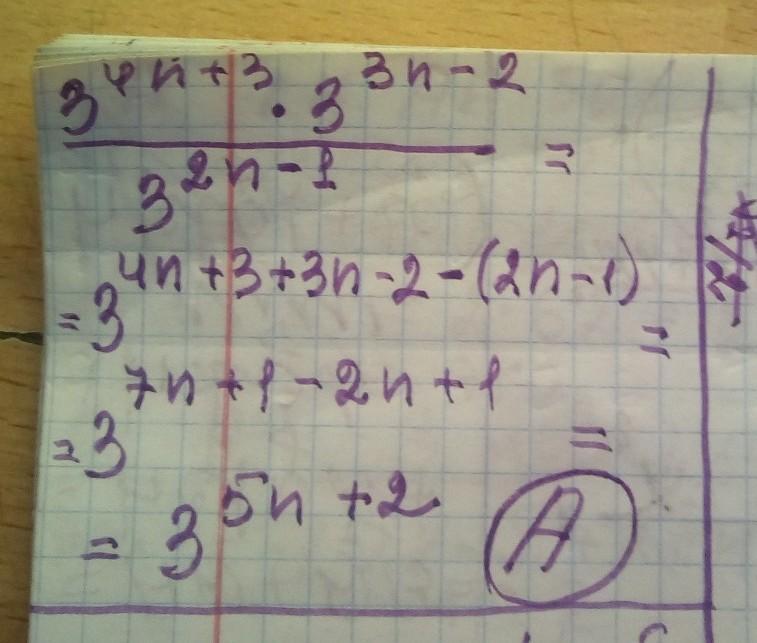 3^{4n+3} · 3^{3n-2}
3^{2n-1} =
= 3^{4n+3+3n-2-(2n-1)} =
= 3^{7n+1-2n+1} =
= 3^{5n+2} A